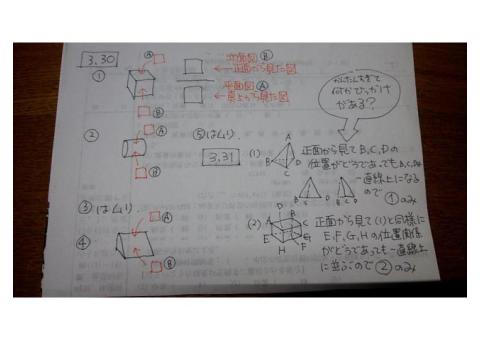 3.30
①
Ⓐ
Ⓑ
立面図 Ⓑ
←正面から見た図
平面図 Ⓐ
←真上から見た図
②
Ⓐ
Ⓑ
③はムリ
④
Ⓐ
Ⓑ
⑤はムリ
3.31
かんたんすぎて
何かひっかけ
がある?
(1)
A
B
C
D
正面から見てB,C,Dの
位置がどうであってもB,C,Dは
一直線上になる
ので
①のみ
(2)
A
B
C
D
E
F
G
H
正面から見て(1)と同様に
E,F,G,Hの位置関係
がどうであっても一直線上
に並ぶので②のみ